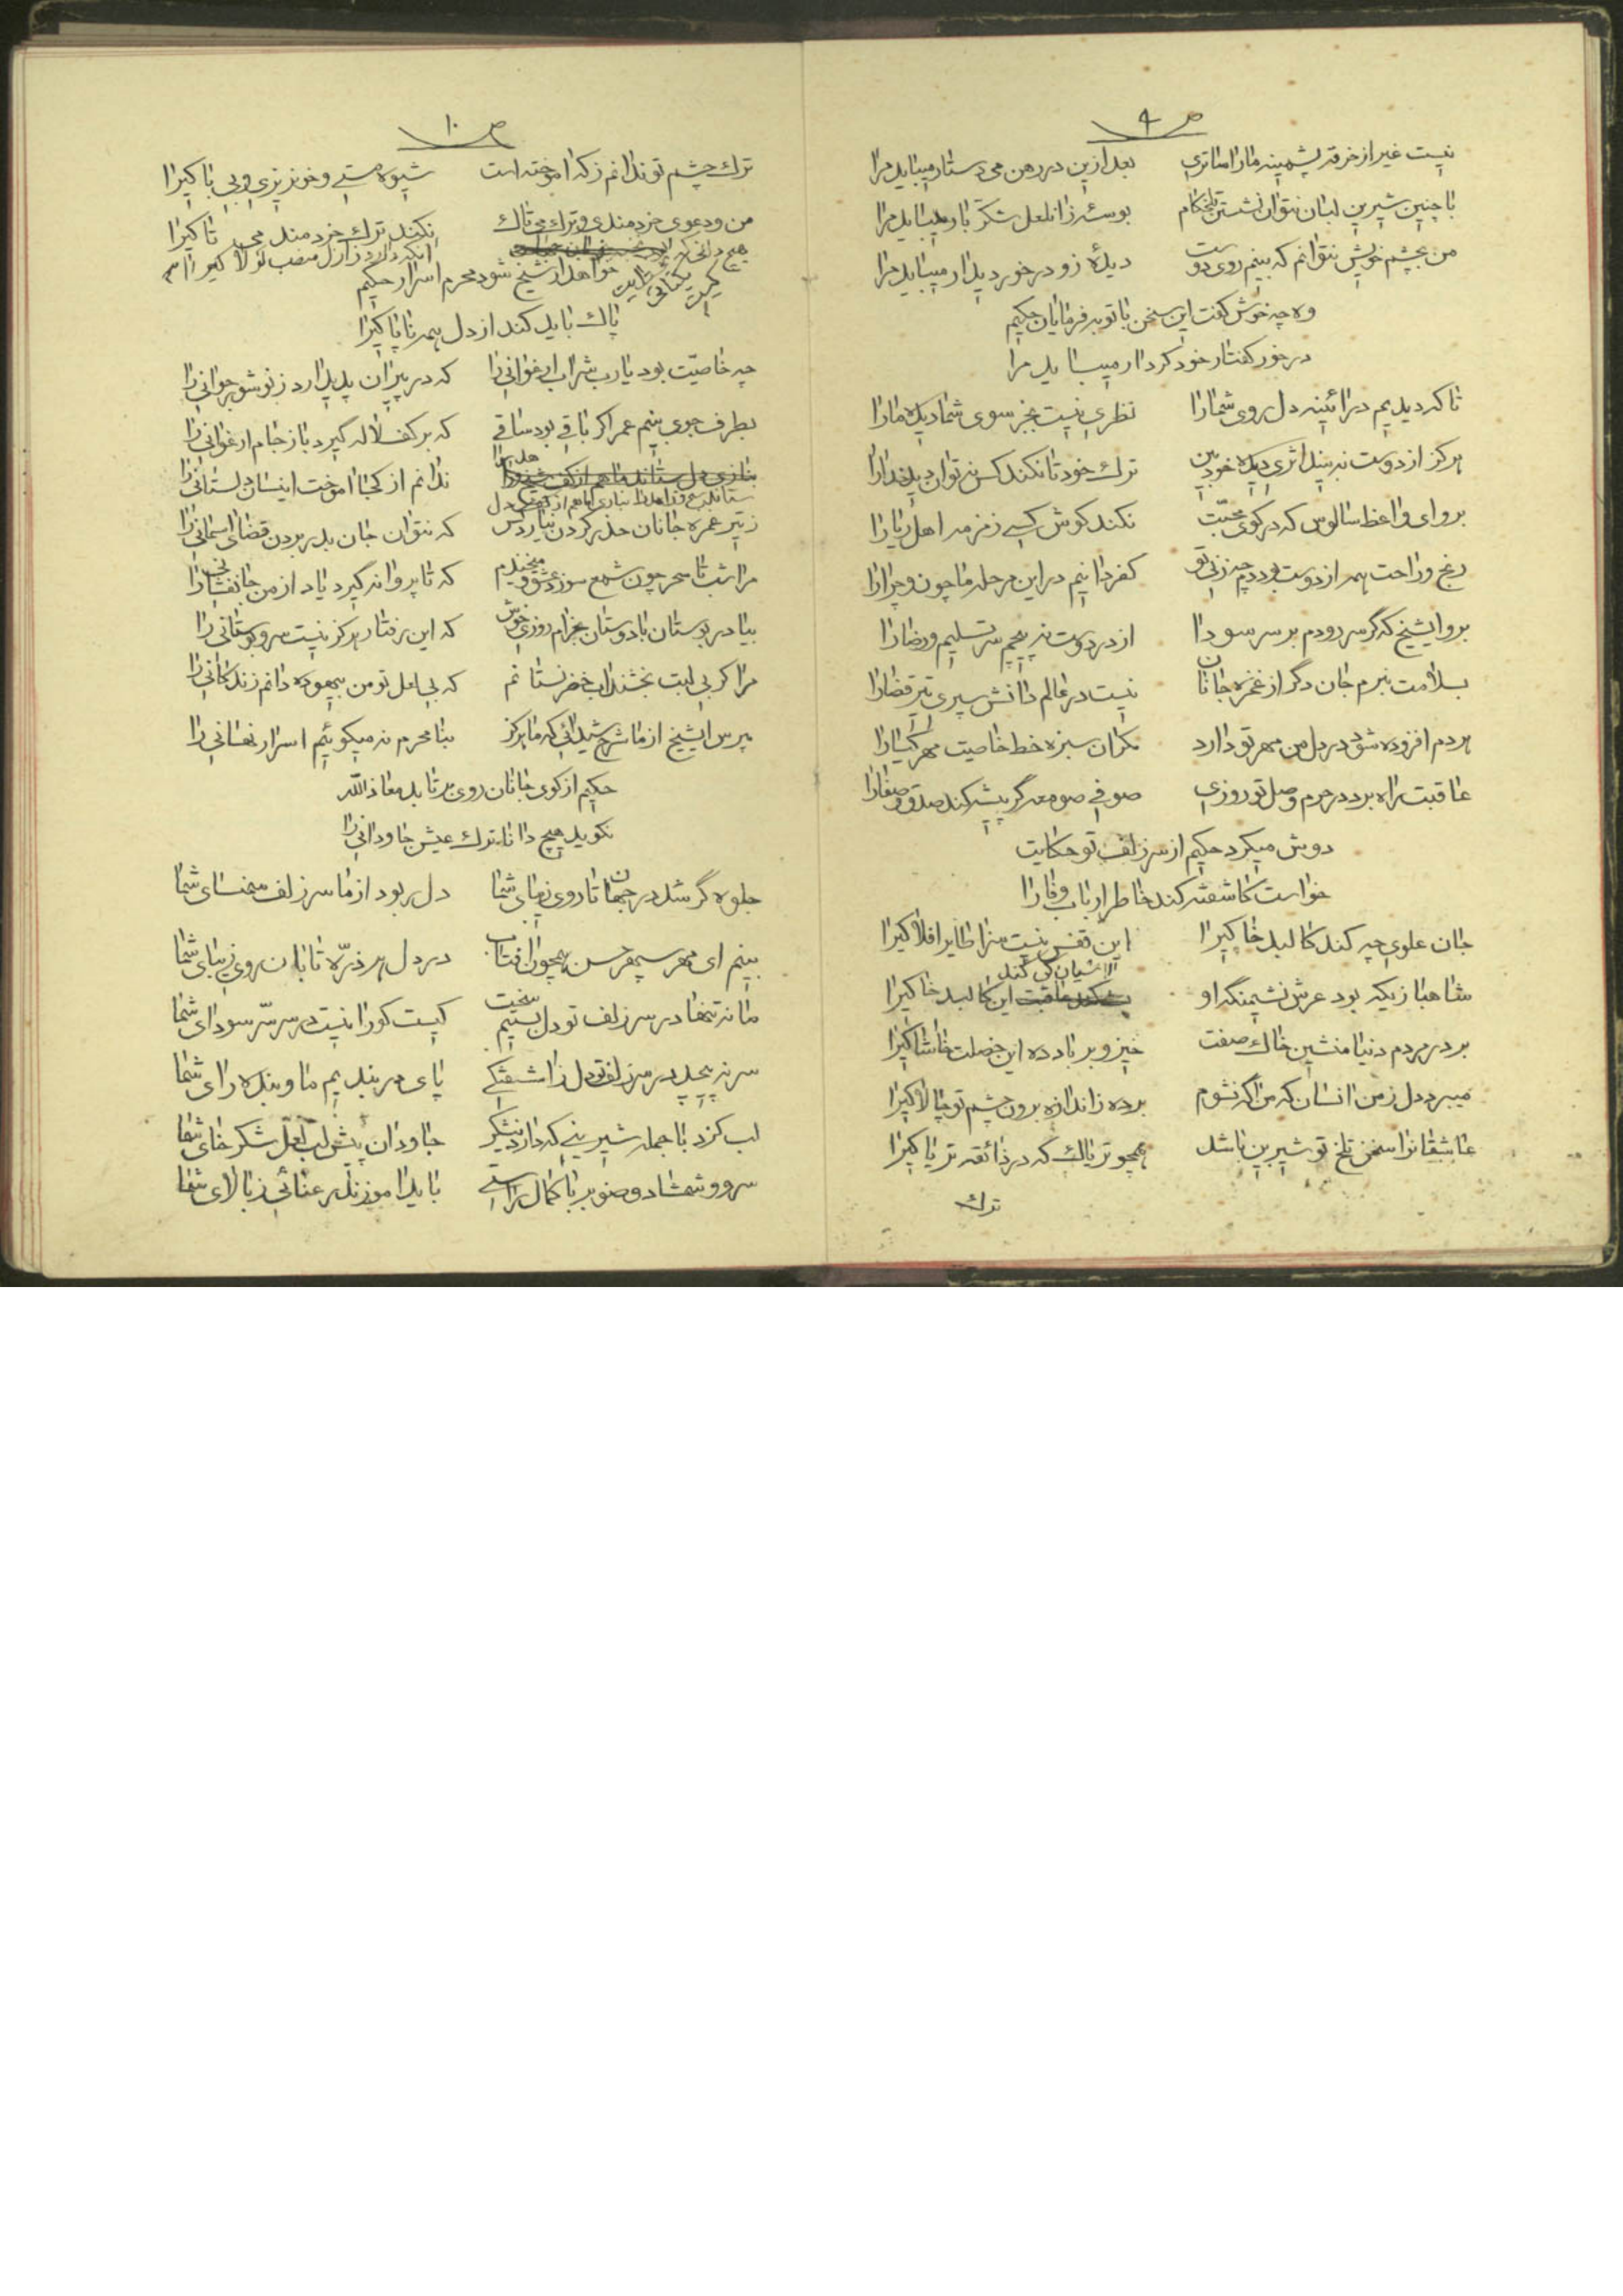 ص ۹
نیست غیر از خرقه پشمینه ما را متاع بعد ازین در رهن می دستار میباید مرا
با چنین شیرین لبان نتوان نشستن تلخکام بوسهٔ زان لعل شکر بار میباید مرا
من بچشم خویش نتوانم که بینم روی دوست دیدهٔ زو در خور دیدار میباید مرا
وه چه خوش گفت این سخن با توبه فرمایان حکیم
در خور گفتار خود کردار میباید مرا
تا که دیدیم در آئینه دل روی شما را نظری نیست بجز سوی شما دیده ما را
هرکز از دوست نه بیند اثری دیده خودبین ترک خود تا نکند کس نتوان دید خدا را
برو ای واعظ سالوس که در کوی محبّت نکند کوش کسی زمزمه اهل ریا را
رنج و راحت همه از دوست بود دم چه زنی تو کفر دانیم در این مرحله ما چون و چرا را
برو ایشیخ که گر سر رودم بر سر سودا از در دوست نه پیچم سر تسلیم و رضا را
بسلامت نبرم جان دگر از غمزه جانان نیست در عالم دانش سپری تیر قضا را
هر دم افزوده شود در دل من مهر تو دارد مکر آن سبزه خط خاصیت مهر گیا را
عاقبت راه برد در حرم وصل تو روزی صوفی صومعه گر پیشه کند صدق و صفا را
دوش میکرد حکیم از سر زلف تو حکایت
خواست کاشفته کند خاطر ارباب وفا را
جان علوی چه کند کالبد خاکیرا این قفس نیست سزا طایر افلاکیرا
شاهبازیکه بود عرش نشیمنگه او آشیان کی کند این کالبد خاکیرا
بر در مردم دنیا منشین خاک صفت خیز و بر باد ده این خصلت خاشاکیرا
میبرد دل ز من انسان که من آگه نشوم برده ز اندازه برون چشم تو چالاکیرا
عاشقانرا سخن تلخ تو شیرین باشد همچو تریاک که در ذائقه تریاکیرا
ترک
ص ۱۰
ترک چشم تو ندانم ز که آموخته است شیوه مستی و خونریزی و بی باکیرا
من و دعوی خردمندی و ترک می تاک نکند ترک خردمند می تاکیرا
هیچ دانی که آنکه دارد ز ازل منصب لولاکیرا
خواهد ار شیخ شود محرم اسرار حکیم
پاک باید کند از دل همه ناپاکیرا
چه خاصیّت بود یا رب شراب ارغوانی را که در پیران پدید آرد ز نو شور جوانی را
بطرف جوی بینم عمر اگر باقی بود ساقی که بر کف لاله گیرد باز جام ارغوانی را
ندانم از کجا آموخت اینسان دلستانی را
ز تیر غمزه جانان حذر کردن نیارد کس که نتوان جان بدر بردن قضای آسمانی را
مرا شب تا سحر چون شمع سوزد عشق و میخندم که تا پروانه گیرد یاد از من جانفشانی را
بیا در بوستان با دوستان بخرام روزی خوش که این رفتار هرکز نیست سرو بوستانی را
مرا کر بی لبت بخشند آب خضر نستانم که بی لعل تو من بیهوده دانم زندکانی را
مپرس ایشیخ از ما شرح شیدائی که ما هرکز بنا محرم نه میکوئیم اسرار نهانی را
حکیم از کوی جانان روی بر تابد معاذ الله
نکوید هیچ دانا ترک عیش جاودانی را
جلوه گر شد در جهان تا روی زیبای شما دل ربود از ما سر زلف سمن سای شما
بینم ای مهر سپهر حسن همچون آفتاب در دل هر ذرّه تابان روی زیبای شما
ما نه تنها در سر زلف تو دل بستیم سخت کیست کو را نیست در سر سرّ سودای شما
سر نه پیچد در سر زلف تو دل ز آشفتگی پای در بندیم ما و بنده رای شما
لب گزد با جمله شیرینی که دارد نیشکر جاودان پیش لب لعل شکر خای شما
سرو و شمشاد و صنوبر با کمال راستی باید آموزند رعنائی ز بالای شما